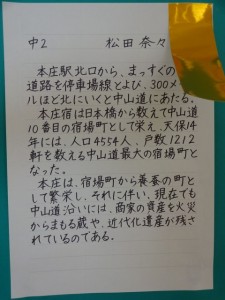 中2 松田奈々
本庄駅北口から、まっすぐの
道路を停車場線とよび、300メ
ルほど北にいくと中山道にあたる。
本庄宿は日本橋から数えて中山道
10番目の宿場町として栄え、天保14
年には、人口4554人、戸数1212
軒を数える中山道最大の宿場町と
なった。
本庄は、宿場町から養蚕の町と
して繁栄し、それに伴い、現在でも
中山道沿いには、商家の資産を火災
からまもる蔵や、近代化遺産が残さ
れているのである。